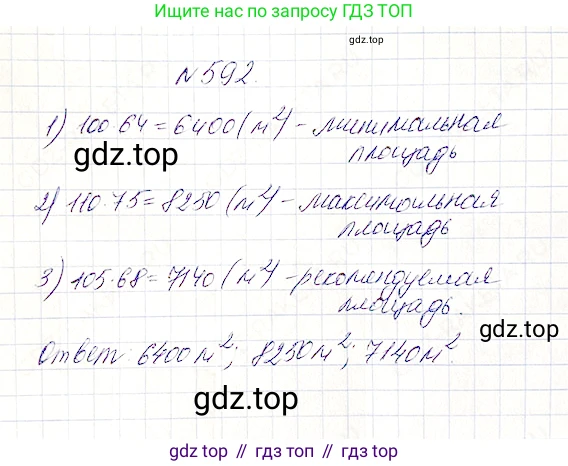 Ищите по запросу ГДЗ ТОП
gdz.top
№592.
1) 100·64=6400(м²) - минимальная
площадь
gdz.top
2) 110·75=8250(м²) - максимальная
площадь
gdz.top
3) 105·68=7140(м²) - рекомендуемая
площадь.
gdz.top
Ответ: 6400м²; 8250м²; 7140м².
gdz.top
gdz.top // gdz.top // gdz.top